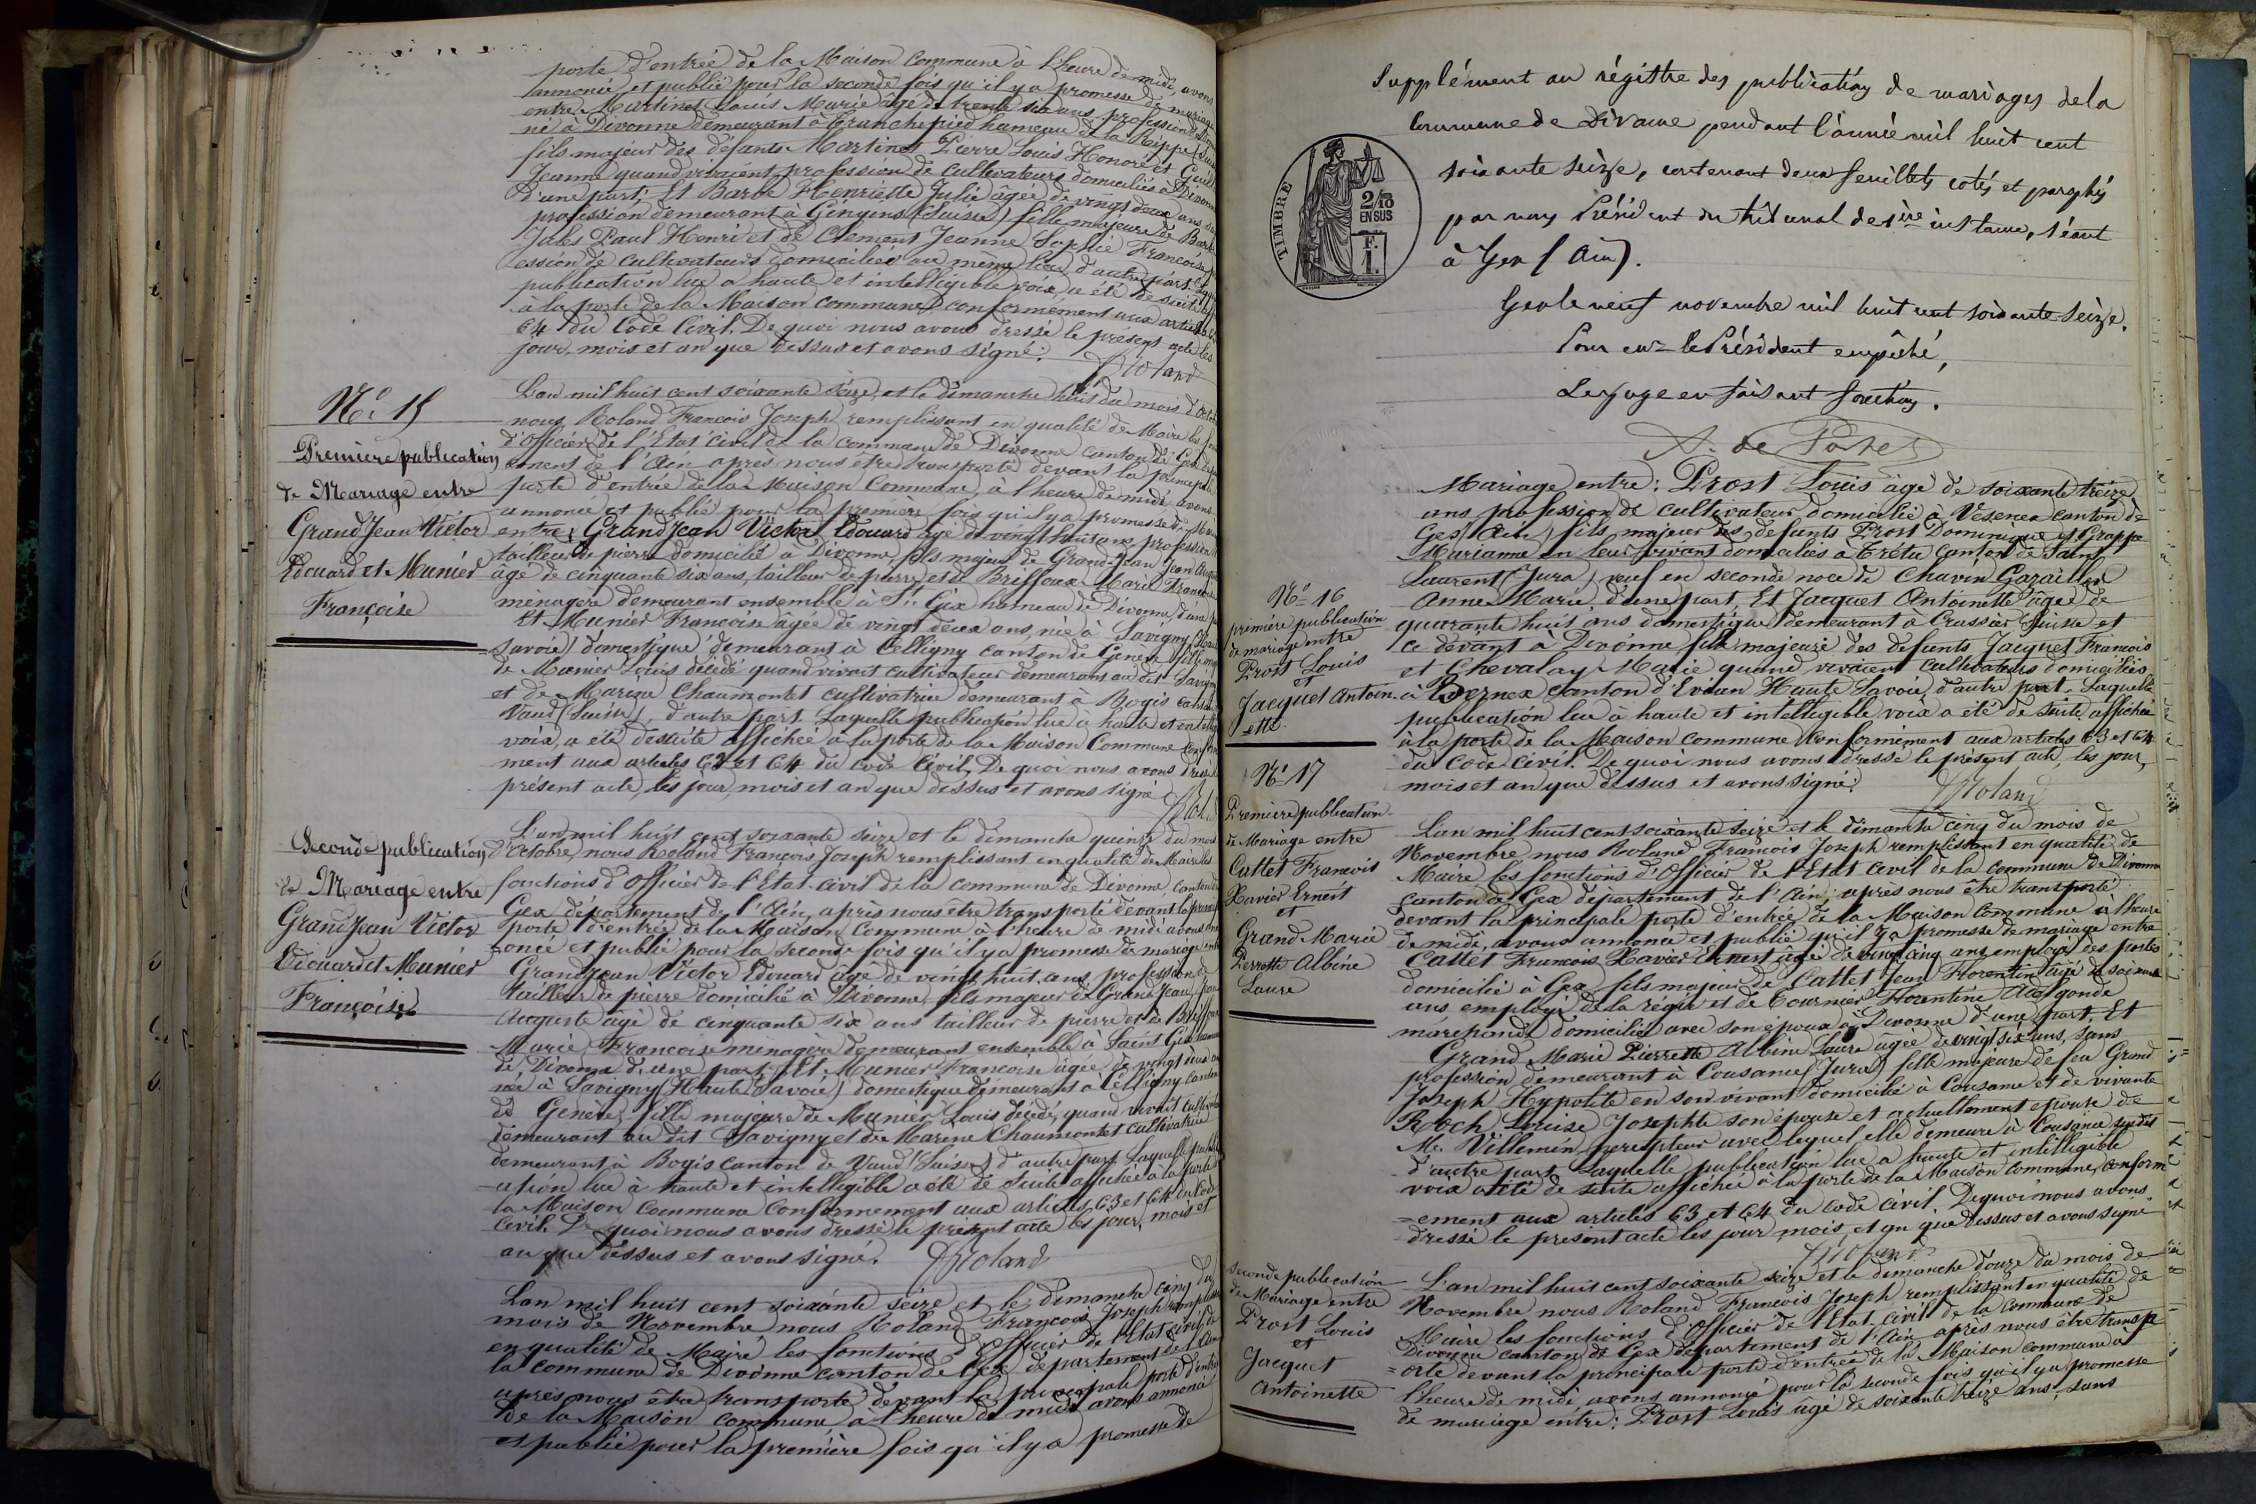 porte d'entrée de la Maison Commune à l'heure de midi, avons
annoncé et publié pour la seconde fois qu'il y a promesse de mariage
entre Martinet Louis Marie âgé de trente six ans profession de
né à Divonne demeurant à Tranchepied hameau de la Rippe
fils majeur des défunts Martinet Pierre Louis Honoré et
Jeanne quand vivaient profession de cultivateurs domiciliés à Divonne
d'une part; Et Barbe Henriette Julie âgée de vingt deux ans
profession demeurant à Gingens (Suisse) fille majeure de
Jules Paul Henri et de Clement Jeanne Sophie Françoise
ession de cultivateurs domiciliés au même lieu d'autre part.
publication lue à haute et intelligible voix a été de suite
à la porte de la Maison Commune conformément aux articles
64 du Code Civil. De quoi nous avons dressé le présent acte les
jour, mois et an que dessus et avons signé.
Roland
N° 15
Première publication
de Mariage entre
GrandJean Victor
Edouard et Munier
Françoise
L'an mil huit cent soixante seize, et le dimanche huit du mois d'
nous Roland François Joseph remplissant en qualité de Maire les
d'Officier de l'Etat Civil de la commune de Divonne canton de Gex
ement de l'Ain après nous être transporté devant la principale
porte d'entrée de la Maison Commune, à l'heure de midi avons
annoncé et publié pour la première fois qu'il y a promesse de
entre GrandJean Victor Edouard âgé de vingt huit ans, profession
tailleur de pierre domicilié à Divonne, fils majeur de Grand-Jean Jean
âgé de cinquante six ans, tailleur de pierre, et de Briffoux Marie
ménagère demeurant ensemble à St. Gix hameau de Divonne, d'une
Et Munier Françoise âgée de vingt deux ans, née à Savigny
Savoie) domestique demeurant à Celligny canton de Genève fille
de Munier Louis décédé quand vivait cultivateur demeurant au dit
et de Marine Chaumontet cultivatrice demeurant à Bogis canton
Vaud (Suisse), d'autre part. Laquelle publication lue à haute et
voix, a été de suite affichée à la porte de la Maison Commune
ment aux articles 63 et 64 du code Civil, De quoi nous avons dressé
présent acte, les jour, mois et an que dessus et avons signé
Seconde publication
de Mariage entre
GrandJean Victor
Edouard et Munier
Françoise
L'an mil huit cent soixante seize et le dimanche quinze du mois
d'Octobre, nous Roland François Joseph remplissant en qualité de Maire les
fonctions d'Officier de l'Etat-civil de la commune de Divonne canton de
Gex département de l'Ain, après nous être transporté devant la
porte d'entrée de la Maison Commune à l'heure de midi avons
oncé et publié pour la seconde fois qu'il y a promesse de mariage entre
GrandJean Victor Edouard âgé de vingt huit ans, profession de
tailleur de pierre domicilié à Divonne fils majeur de GrandJean
Auguste âgé de cinquante six ans tailleur de pierre et de
Marie Françoise ménagère demeurant ensemble à Saint Gix
de Divonne d'une part, Et Munier Françoise âgée de vingt deux
née à Savigny (Haute Savoie) domestique demeurant à Celligny canton
de Genève, fille majeure de Munier Louis décédé, quand vivait
demeurant au dit Savigny et de Marine Chaumontet cultivatrice
demeurant à Bogis canton de Vaud (Suisse) d'autre part Laquelle
ation lue à haute et intelligible a été de suite affichée à la porte
la Maison Commune conformément aux articles 63 et 64 du Code
civil. De quoi nous avons dressé le présent acte les jour, mois et
an que dessus et avons signé.
Roland
L'an mil huit cent soixante seize et le dimanche cinq du
mois de Novembre nous Roland François Joseph
en qualité de Maire les fonctions d'Officier de l'Etat civil de
la commune de Divonne canton de Gex département de l'Ain
après nous être transporté devant la principale porte d'entrée
de la Maison commune, à l'heure de midi avons annoncé
et publié pour la première fois qu'il y a promesse de
Supplément au régistre des publications de mariages de la
Commune de Divonne pendant l'année mil huit cent
soixante seize, contenant deux feuillets cotés et paraphés
par nous Président du tribunal de 1ère instance, séant
à Gex (Ain).
Gex le neuf novembre mil huit cent soixante-seize.
Pour le Président empêché,
Le juge en faisant fonctions.
TIMBRE
2/10
EN SUS
F.
1.
N° 16
première publication
de mariage entre
Prost Louis
et
Jacquet Antoin-
ette.
Mariage entre: Prost Louis âgé de soixante treize
ans profession de cultivateur domicilié à Vesenex canton de
Gex (Ain), fils majeur des défunts Prost Dominique et Grappe
Marianne en leur vivant domiciliés à canton de Saint
Laurent (Jura), veuf en seconde noce de Chavin Gazaillon
Anne Marie, d'une part, Et Jacquet Antoinette âgée de
quarante huit ans domestique demeurant à Crassier Suisse et
ce devant à Divonne fille majeure des défunts Jacquet François
et Chevalay Marie quand vivaient cultivateurs domiciliés
à Bernex canton d'Evian Haute Savoie, d'autre part. Laquelle
publication lue à haute et intelligible voix a été de suite affichée
à la porte de la Maison commune conformément aux articles 63 et 64
du Code civil. De quoi nous avons dressé le présent acte, les jour,
mois et an que dessus et avons signé.
Roland
N° 17
Première publication
de Mariage entre
Cattet François
Xavier Ernest
et
Grand Marie
Pierrette Albine
Laure
L'an mil huit cent soixante seize et le dimanche cinq du mois de
Novembre nous Roland François Joseph remplissant en qualité de
Maire les fonctions d'Officier de l'Etat civil de la commune de Divonne
canton de Gex département de l'Ain, après nous être transporté
devant la principale porte d'entrée de la Maison Commune à l'heure
de midi, avons annoncé et publié qu'il y a promesse de mariage entre
Cattet François Xavier Ernest âgé de vingt cinq ans employé des postes
domicilié à Gex fils majeur de Cattet Jean Florentin âgé de soixante
ans employé de la régie et de Tournier Florentine Aldegonde
marchande domiciliée avec son époux à Divonne d'une part, Et
Grand Marie Pierrette Albine Laure âgée de vingt six ans, sans
profession demeurant à Cousance (Jura) fille majeure de feu Grand
Joseph Hypolite en son vivant domicilié à Cousance et de vivante
Roch Louise Josephte son épouse et actuellement épouse de
Mr. Villemin, percepteur avec lequel elle demeure à Cousance susdit
d'autre part Laquelle publication lue à haute et intelligible
voix a été de suite affichée à la porte de la Maison commune, conform
=ement aux articles 63 et 64 du code civil. De quoi nous avons
dressé le présent acte les jour mois et an que dessus et avons signé
Roland
Seconde publication
de Mariage entre
Prost Louis
et
Jacquet
Antoinette
L'an mil huit cent soixante seize et le dimanche douze du mois de
Novembre nous Roland François Joseph remplissant en qualité de
Maire les fonctions d'Officier de l'Etat civil de la commune de
Divonne canton de Gex département de l'Ain après nous être transp
=orté devant la principale porte d'entrée de la Maison commune à
l'heure de midi avons annoncé pour la seconde fois qu'il y a promesse
de mariage entre: Prost Louis âgé de soixante treize ans, sans